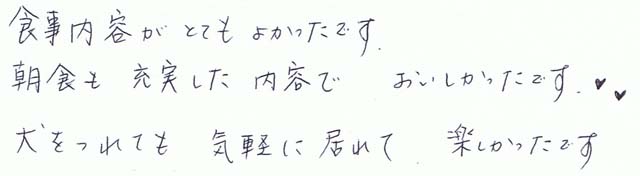 食事内容がとてもよかったです.
朝食も 充実した 内容で おいしかったです.♥♥
犬をつれても 気軽に居れて 楽しかったです